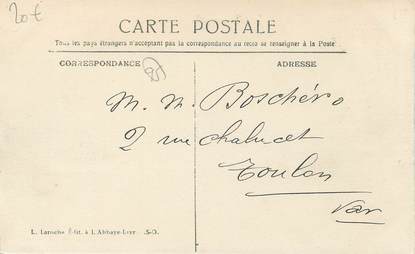 20€
CARTE POSTALE
Tous les pays étrangers n'acceptant pas la correspondance au recto se renseigner à la Poste
CORRESPONDANCE
ADRESSE
M. M. Boschéro
2 rue Chalucet
Toulon
Var
L. Laroche Édit. à L'Abbaye-Livr